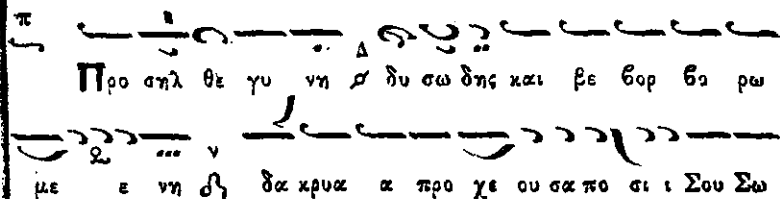 π
Δ
Προ σηλ θε γυ νη δυ σω δης και βε βορ βο ρω
ν
με ε νη δα κρυα α προ χε ου σα πο σι ι Σου Σω